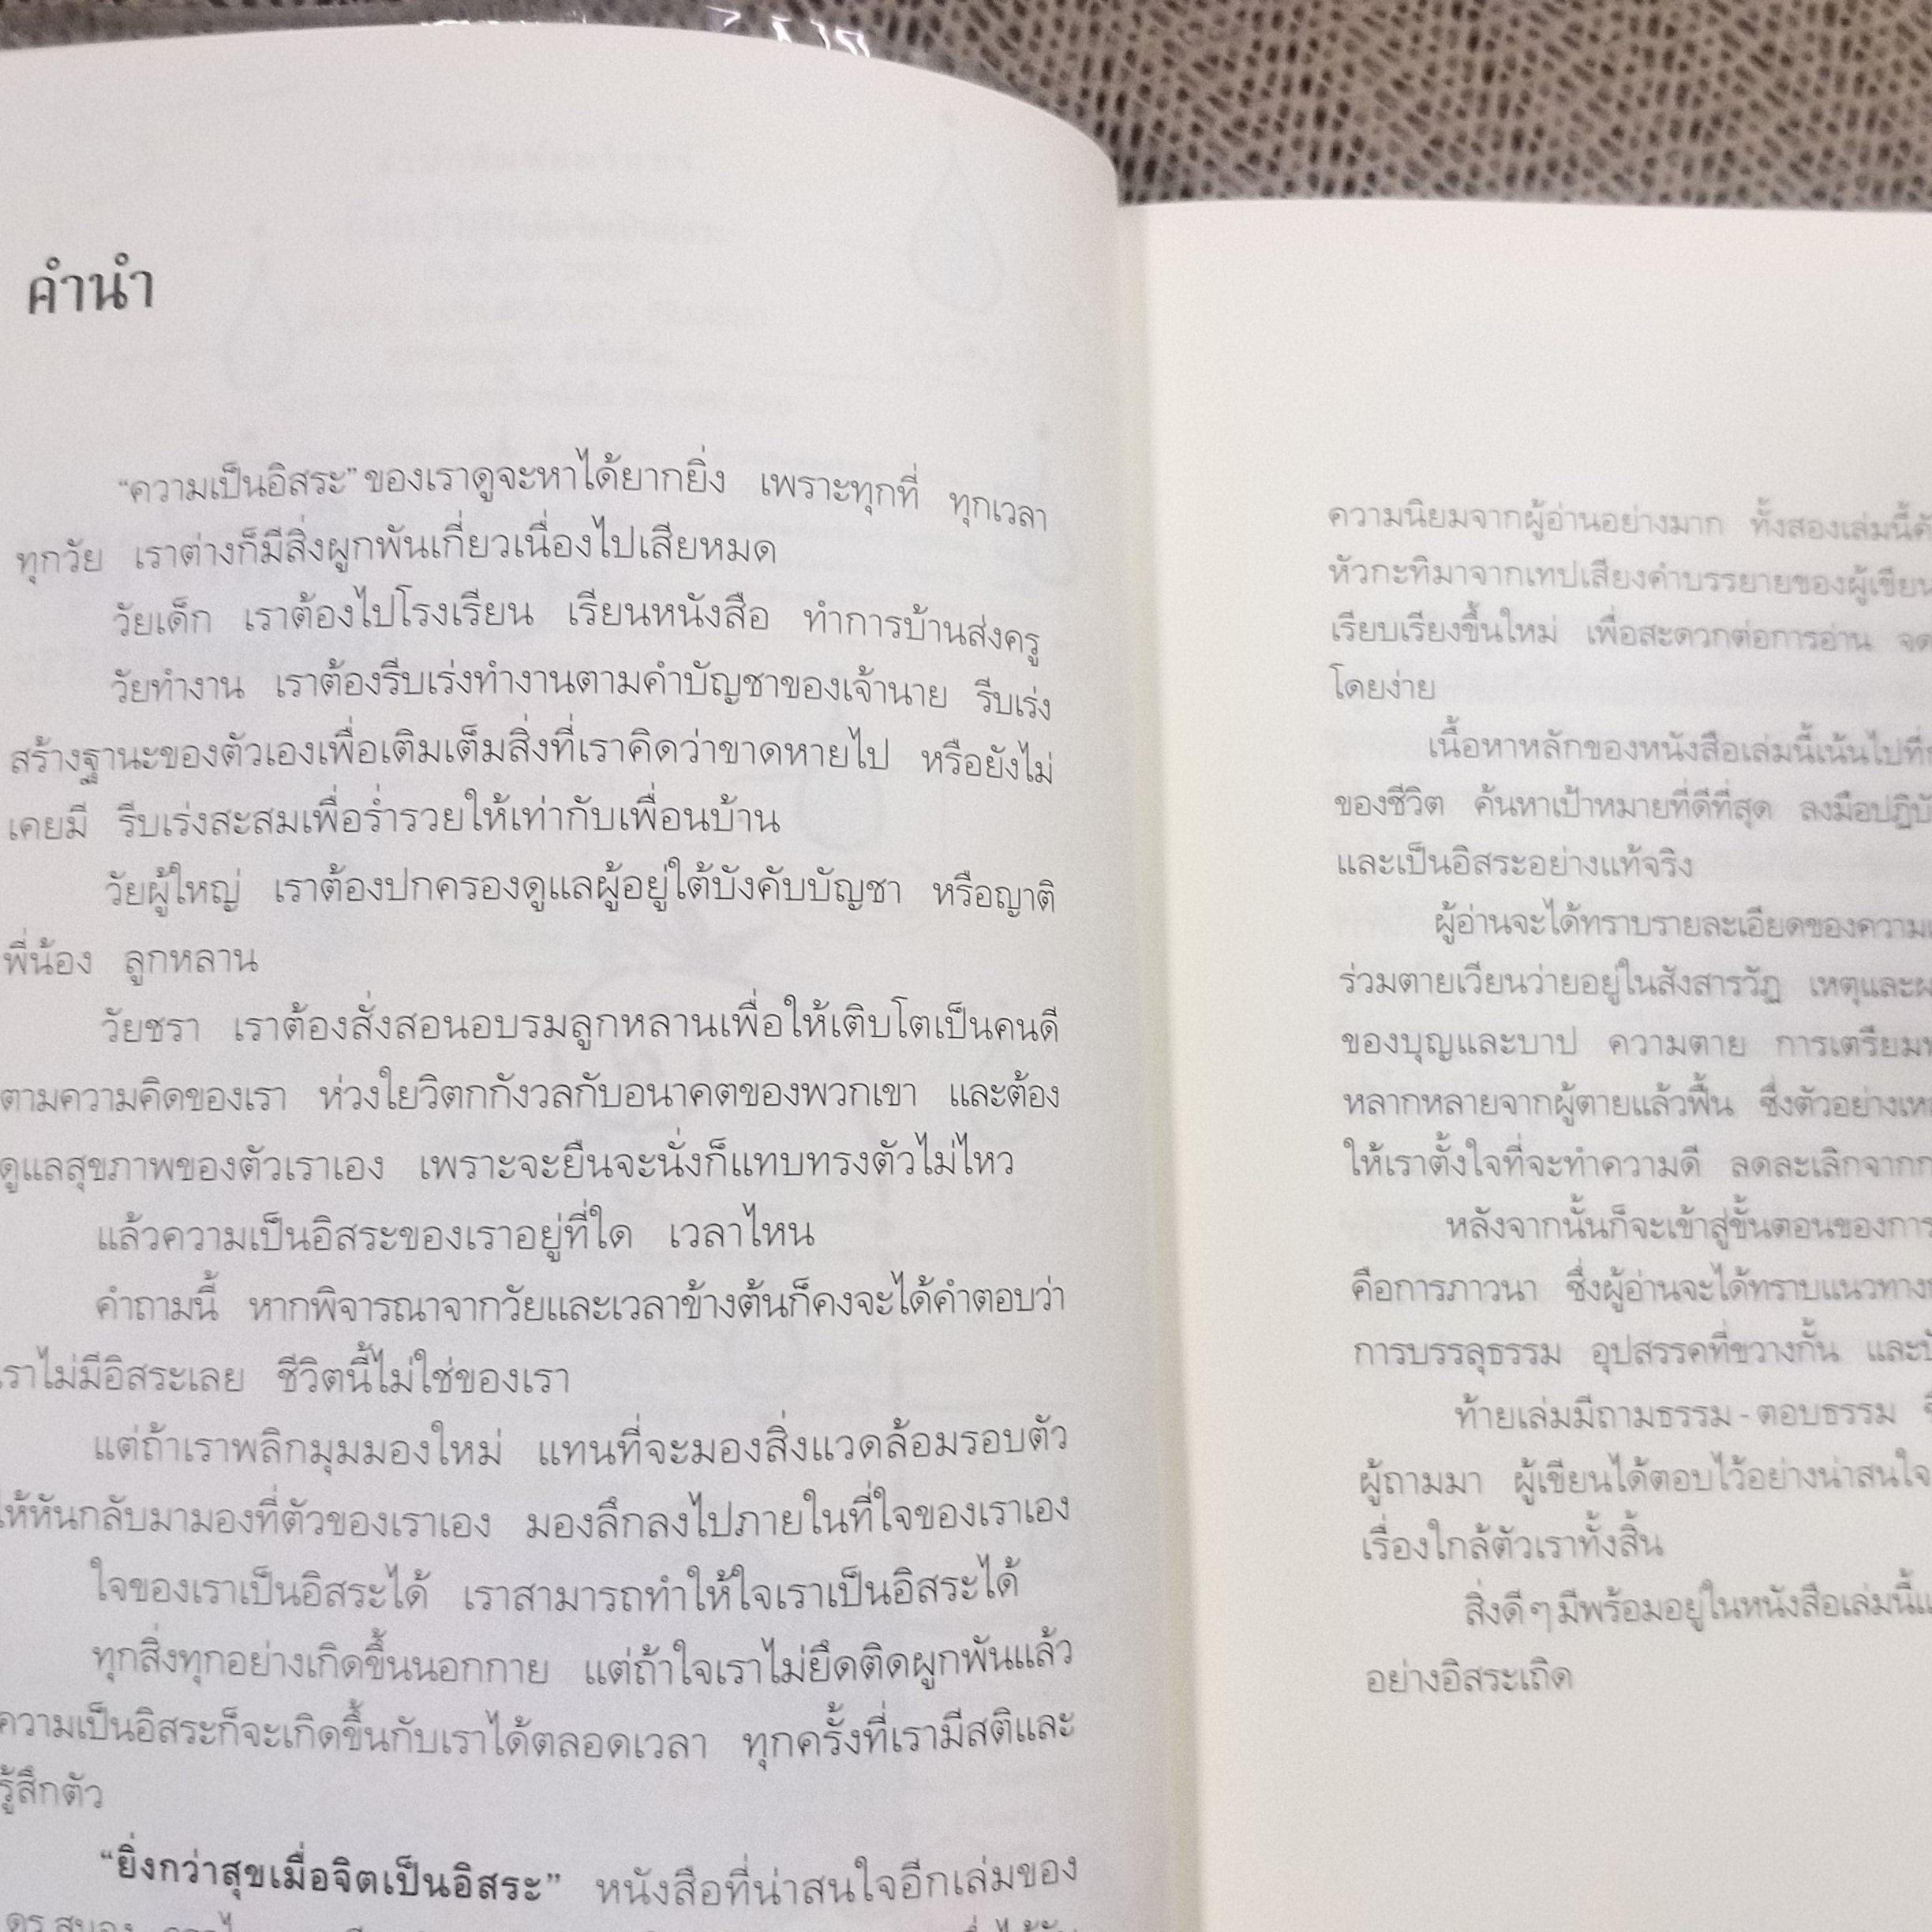 คำนำ
“ความเป็นอิสระ” ของเราดูจะหาได้ยากยิ่ง เพราะทุกที่ ทุกเวลา
ทุกวัย เราต่างก็มีสิ่งผูกพันเกี่ยวเนื่องไปเสียหมด
วัยเด็ก เราต้องไปโรงเรียน เรียนหนังสือ ทำการบ้านส่งครู
วัยทำงาน เราต้องรีบเร่งทำงานตามคำบัญชาของเจ้านาย รีบเร่ง
สร้างฐานะของตัวเองเพื่อเติมเต็มสิ่งที่เราคิดว่าขาดหายไป หรือยังไม่
เคยมี รีบเร่งสะสมเพื่อร่ำรวยให้เท่ากับเพื่อนบ้าน
วัยผู้ใหญ่ เราต้องปกครองดูแลผู้อยู่ใต้บังคับบัญชา หรือญาติ
พี่น้อง ลูกหลาน
วัยชรา เราต้องสั่งสอนอบรมลูกหลานเพื่อให้เติบโตเป็นคนดี
ตามความคิดของเรา ห่วงใยวิตกกังวลกับอนาคตของพวกเขา และต้อง
ดูแลสุขภาพของตัวเราเอง เพราะจะยืนจะนั่งก็แทบทรงตัวไม่ไหว
แล้วความเป็นอิสระของเราอยู่ที่ใด เวลาไหน
คำถามนี้ หากพิจารณาจากวัยและเวลาข้างต้นก็คงจะได้คำตอบว่า
เราไม่มีอิสระเลย ชีวิตนี้ไม่ใช่ของเรา
แต่ถ้าเราพลิกมุมมองใหม่ แทนที่จะมองสิ่งแวดล้อมรอบตัว
ให้หันกลับมามองที่ตัวของเราเอง มองลึกลงไปภายในที่ใจของเราเอง
ใจของเราเป็นอิสระได้ เราสามารถทำให้ใจเราเป็นอิสระได้
ทุกสิ่งทุกอย่างเกิดขึ้นนอกกาย แต่ถ้าใจเราไม่ยึดติดผูกพันแล้ว
ความเป็นอิสระก็จะเกิดขึ้นกับเราได้ตลอดเวลา ทุกครั้งที่เรามีสติและ
รู้สึกตัว
“ยิ่งกว่าสุขเมื่อจิตเป็นอิสระ” หนังสือที่น่าสนใจอีกเล่มของ
ความนิยมจากผู้อ่านอย่างมาก ทั้งสองเล่มนี้
หัวกะทิมาจากเทปเสียงคำบรรยายของผู้เขียน
เรียบเรียงขึ้นใหม่ เพื่อสะดวกต่อการอ่าน
โดยง่าย
เนื้อหาหลักของหนังสือเล่มนี้เน้นไปที่
ของชีวิต ค้นหาเป้าหมายที่ดีที่สุด ลงมือ
และเป็นอิสระอย่างแท้จริง
ผู้อ่านจะได้ทราบรายละเอียดของ
ร่วมตายเวียนว่ายอยู่ในสังสารวัฏ เหตุและ
ของบุญและบาป ความตาย การเตรียม
หลากหลายจากผู้ตายแล้วฟื้น ซึ่งตัวอย่าง
ให้เราตั้งใจที่จะทำความดี ลดละเลิกจาก
หลังจากนั้นก็จะเข้าสู่ขั้นตอนของการ
คือการภาวนา ซึ่งผู้อ่านจะได้ทราบแนวทาง
การบรรลุธรรม อุปสรรคที่ขวางกั้น และ
ท้ายเล่มมีถามธรรม - ตอบธรรม
ผู้ถามมา ผู้เขียนได้ตอบไว้อย่างน่าสนใจ
เรื่องใกล้ตัวเราทั้งสิ้น
สิ่งดีๆ มีพร้อมอยู่ในหนังสือเล่มนี้
อย่างอิสระเถิด